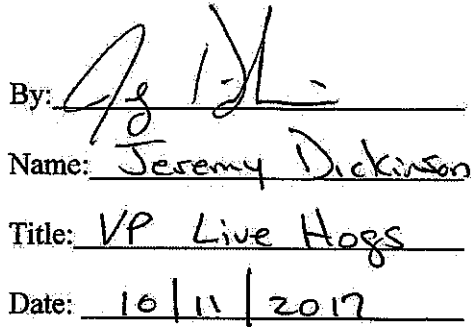 By:
Name: Jeremy Dickinson
Title: VP Live Hogs
Date: 10/11/2017